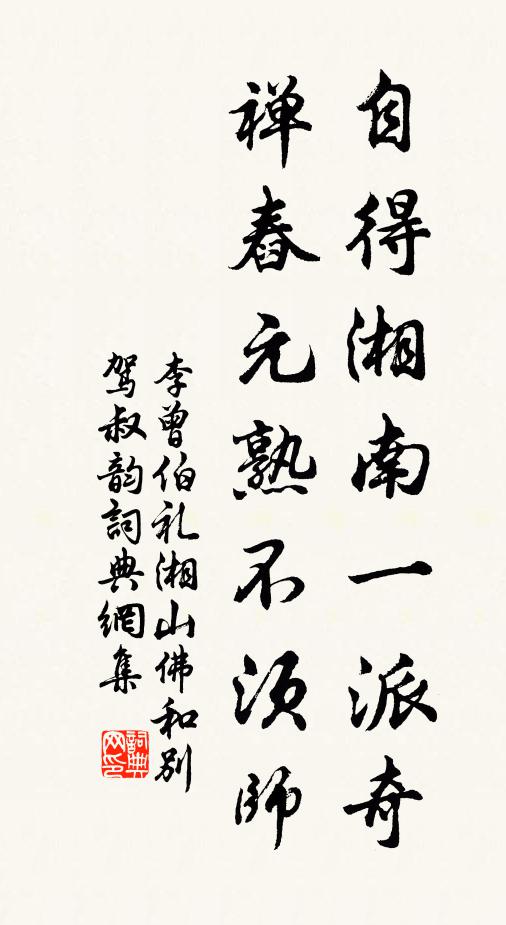 自得湘南一派奇
禅舂元熟不须师
李曾伯礼湘山佛和别
驾叔韵詞典網集
詞典网印